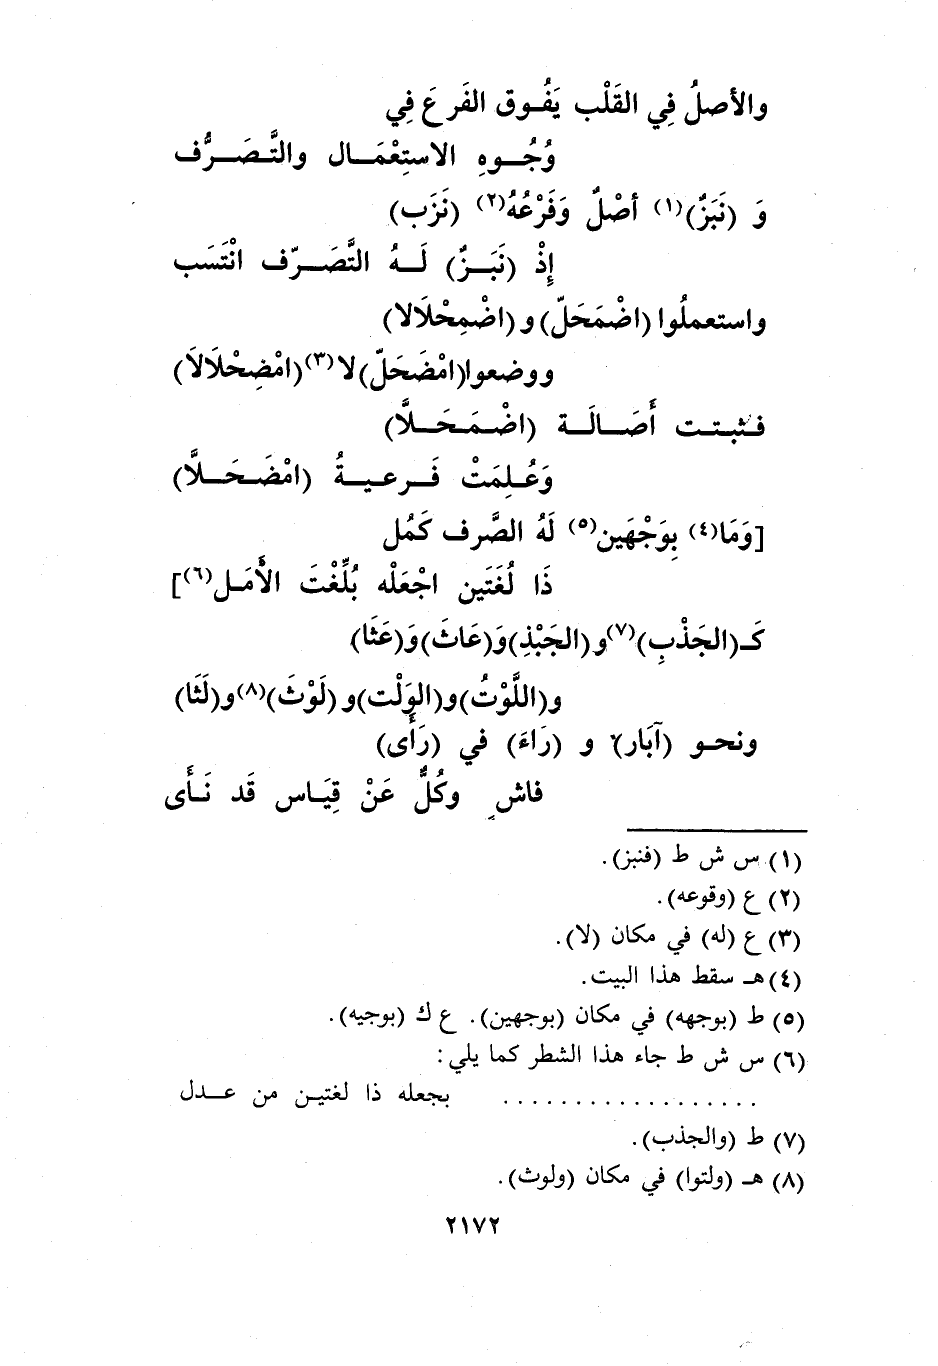 والأصلُ فِي القَلْب يَفُوق الفَرعَ فِي
وُجُوهِ الاستِعْمَال والتَّصَرُّف
وَ (نَبَزٌ)(١) أصْلٌ وَفَرْعُهُ(٢) (نَزَب)
إِذْ (نَبَزٌ) لَهُ التَّصَرّف انْتَسَب
واستعملُوا (اضْمَحَلّ) و (اضْمِحْلَالا)
ووضعوا (امْضَحَلّ) لا(٣) (امْضِحْلَالَا)
فثبتت أَصَالَة (اضْمَحَلَّا)
وَعُلِمَتْ فَرعيةُ (امْضَحَلَّا)
[وَمَا(٤) بِوَجْهَين(٥) لَهُ الصَّرف كَمُل
ذَا لُغَتَين اجْعَلْه بُلِّغْتَ الأَمَل(٦)]
كَـ(الجَذْبِ)(٧) و (الجَبْذِ) وَ(عَاثَ) وَ(عَثَا)
و(اللَّوْتُ) و(الوَلْت) و (لَوْثَ)(٨) و(لَثَا)
ونحو (آبَار) و (رَاءَ) في (رَأَى)
فاشٍ وكُلٌّ عَنْ قِيَاس قَد نَأَى
(١) س ش ط (فنبز).
(٢) ع (وقوعه).
(٣) ع (له) في مكان (لا).
(٤) هـ سقط هذا البيت.
(٥) ط (بوجهه) في مكان (بوجهين). ع ك (بوجيه).
(٦) س ش ط جاء هذا الشطر كما يلي:
. . . . . . . . . . . . . . . . . . بجعله ذا لغتين من عدل
(٧) ط (والجذب).
(٨) هـ (ولتوا) في مكان (ولوث).
٢١٧٢